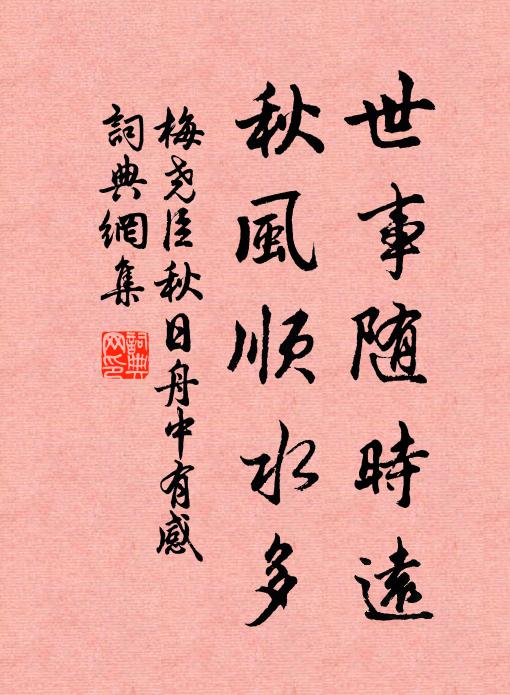 世事随時遠
秋風順水多
梅尧臣秋日舟中有感
詞典網集
詞典
网印